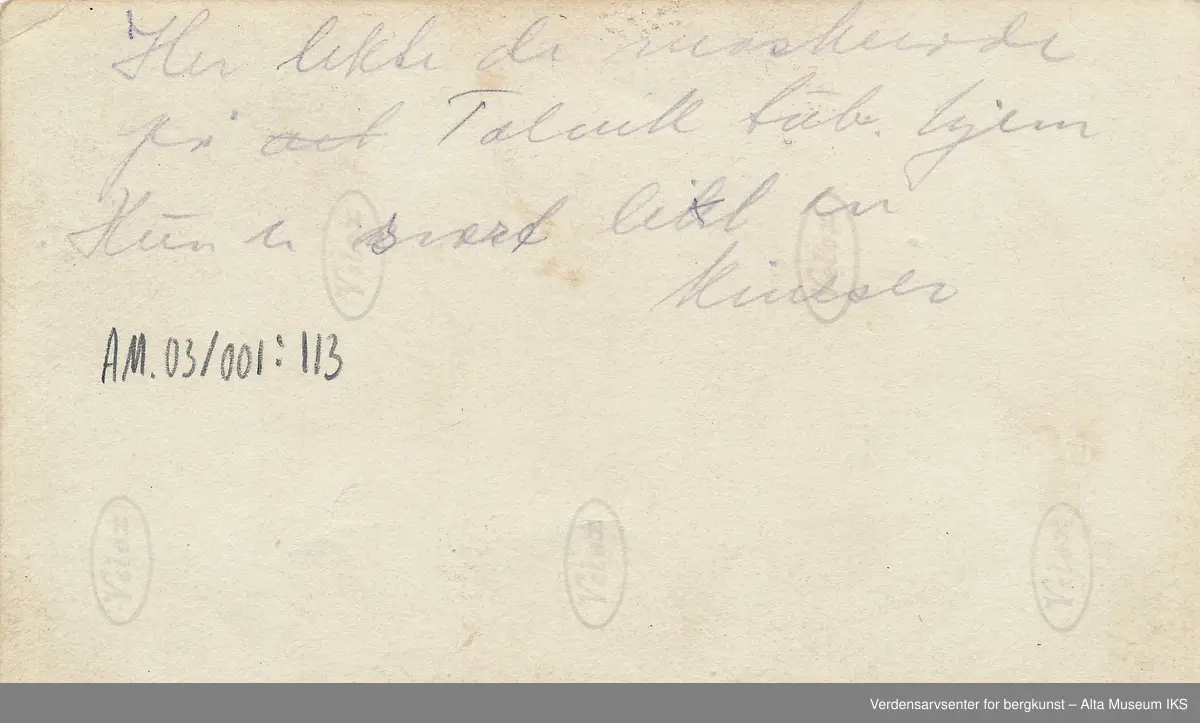 Her lekte de maskerade
på Talvik tub. hjem
Hun er svært likt en
kineser
AM. 03/001:113
Velox
Velox
Velox
Velox
Velox
Verdensarvsenter for bergkunst – Alta Museum IKS